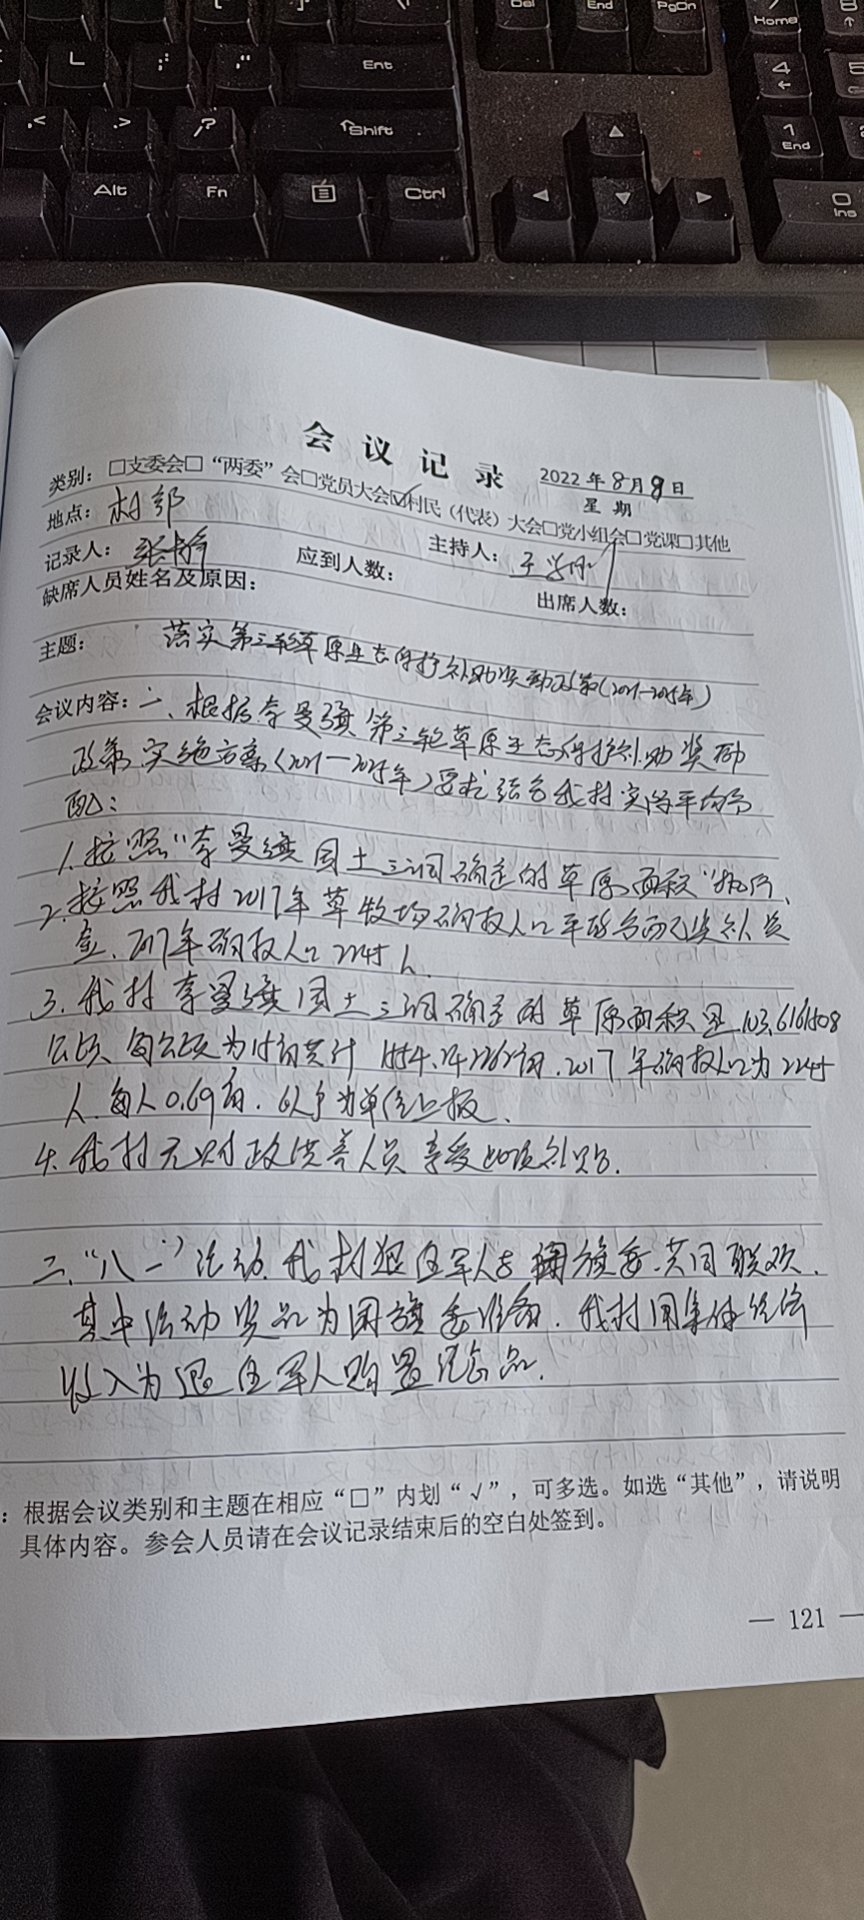 Del End PgDn Home
Ent 4
Shift 1 End
Alt Fn Ctrl 0 Ins
会议记录
2022年8月9日
星期
类别：□支委会□“两委”会□党员大会☑村民（代表）大会□党小组会□党课□其他
地点：村部
记录人： 主持人：
应到人数： 出席人数：
缺席人员姓名及原因：
主题：落实第三轮草原生态保护补助奖励政策(2021—2025年)
会议内容：一、根据奈曼旗第三轮草原生态保护补助奖励
政策实施方案(2021—2025年)要求结合我村实际平均分
配：
1.按照“奈曼旗国土三调确定的草原面积”执行、
2.按照我村2017年草牧场确权人口平均分配奖补资
金、2017年确权人口2245人.
3.我村奈曼旗国土三调确定的草原面积是103.6161508
公顷、每公顷为15亩共计1554.242262亩.2017年确权人口为2245
人.每人0.69亩.以户为单位上报.
4.我村无财政供养人员享受此项补贴.
二、“八一”活动.我村退伍军人与旗委.共同联欢.
其中活动奖品为旗委准备.我村用集体经济
收入为退伍军人购置纪念品.
：根据会议类别和主题在相应“□”内划“√”，可多选。如选“其他”，请说明
具体内容。参会人员请在会议记录结束后的空白处签到。
— 121 —